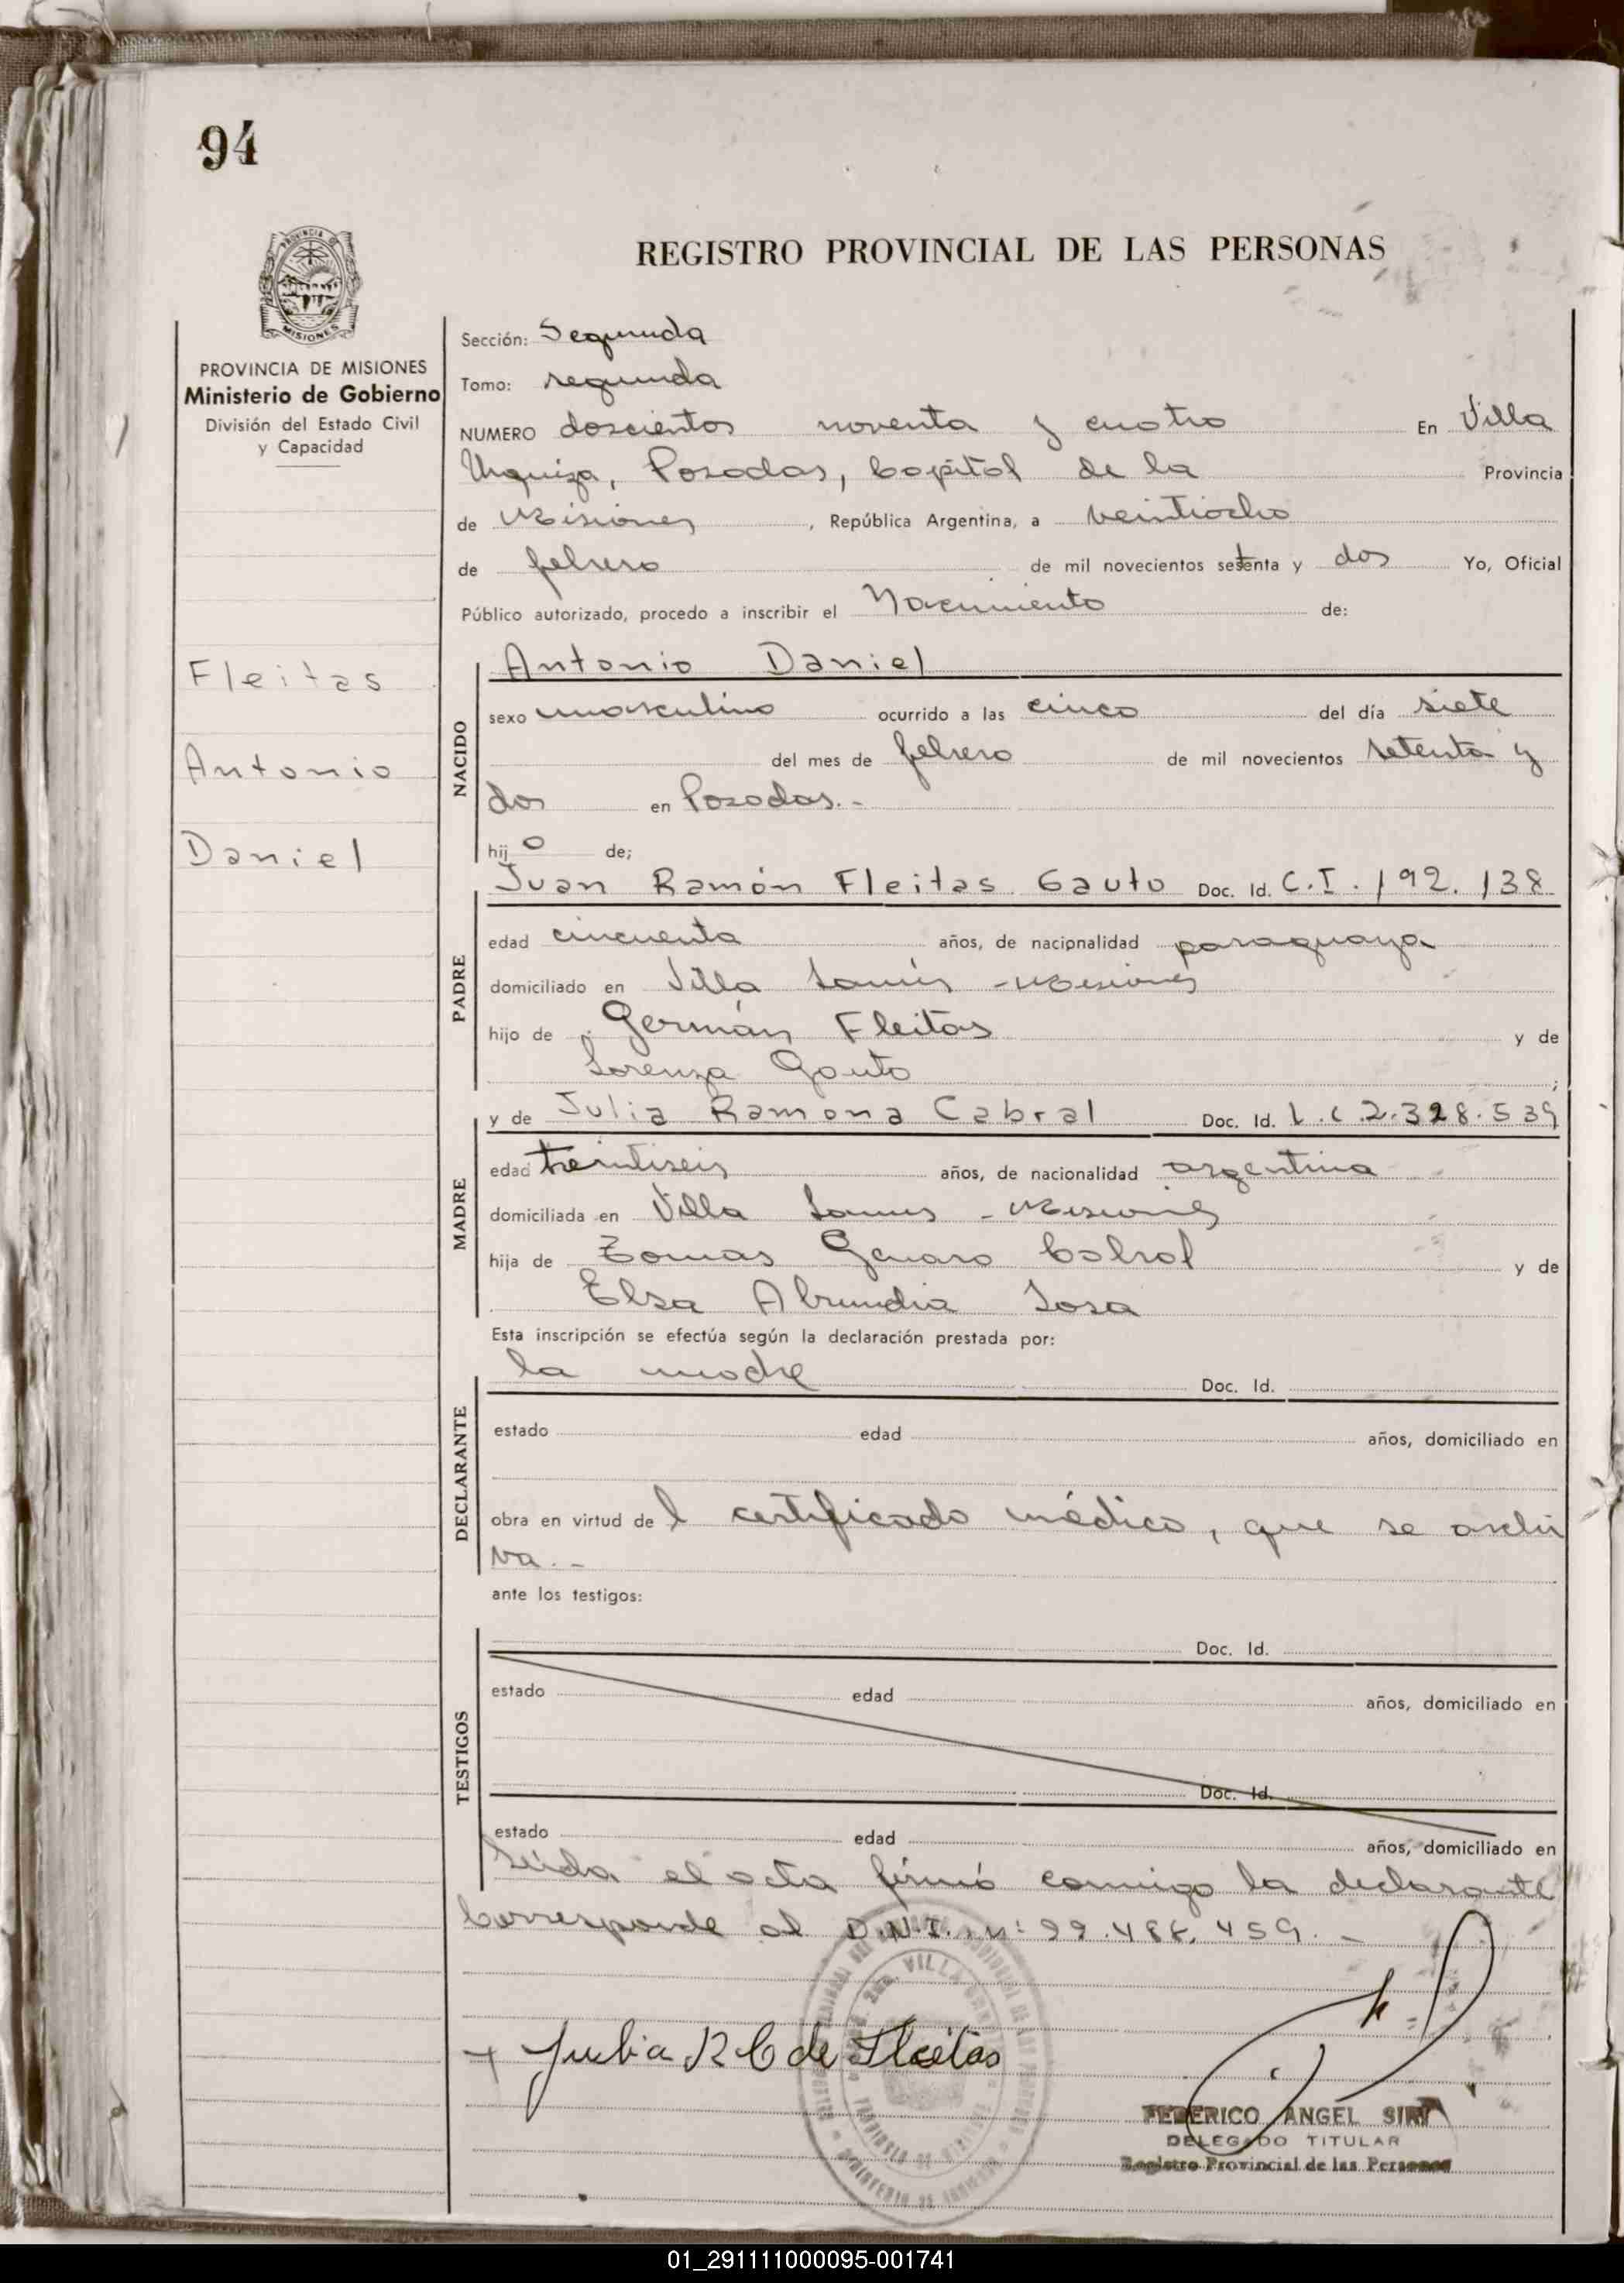 94
REGISTRO PROVINCIAL DE LAS PERSONAS
PROVINCIA DE MISIONES
Ministerio de Gobierno
División del Estado Civil
y Capacidad
Fleitas
Antonio
Daniel
Sección: Segunda
Tomo: segunda
NUMERO doscientos noventa y cuatro En Villa
Urquiza, Posadas, Capital de la Provincia
de Misiones, República Argentina, a veintiocho
de febrero de mil novecientos setenta y dos Yo, Oficial
Público autorizado, procedo a inscribir el Nacimiento de:
NACIDO
Antonio Daniel
sexo masculino ocurrido a las cinco del día siete
del mes de febrero de mil novecientos setenta y
dos en Posadas.-
hijo de;
PADRE
Juan Ramón Fleitas Gauto Doc. Id. C.I. 192.138
edad cincuenta años, de nacionalidad paraguaya
domiciliado en Villa Lanús - Misiones
hijo de Germán Fleitas y de
Lorenza Gauto;
MADRE
y de Julia Ramona Cabral Doc. Id. L.C.2.328.539
edad treintiseis años, de nacionalidad argentina
domiciliada en Villa Lanus - Misiones
hija de Tomas Genaro Cabral y de
Elsa Abundia Sosa
Esta inscripción se efectúa según la declaración prestada por:
DECLARANTE
la madre Doc. Id.
estado edad años, domiciliado en
obra en virtud del certificado médico, que se archi
va.-
ante los testigos:
TESTIGOS
Doc. Id.
estado edad años, domiciliado en
Doc. Id.
estado edad años, domiciliado en
Leída el acta firmó conmigo la declarante
Corresponde al D.N.I. n:
+ Julia R C de Fleitas
FEDERICO ANGEL
DELEGADO TITULAR
Registro Provincial de las Personas
01_291111000095-001741